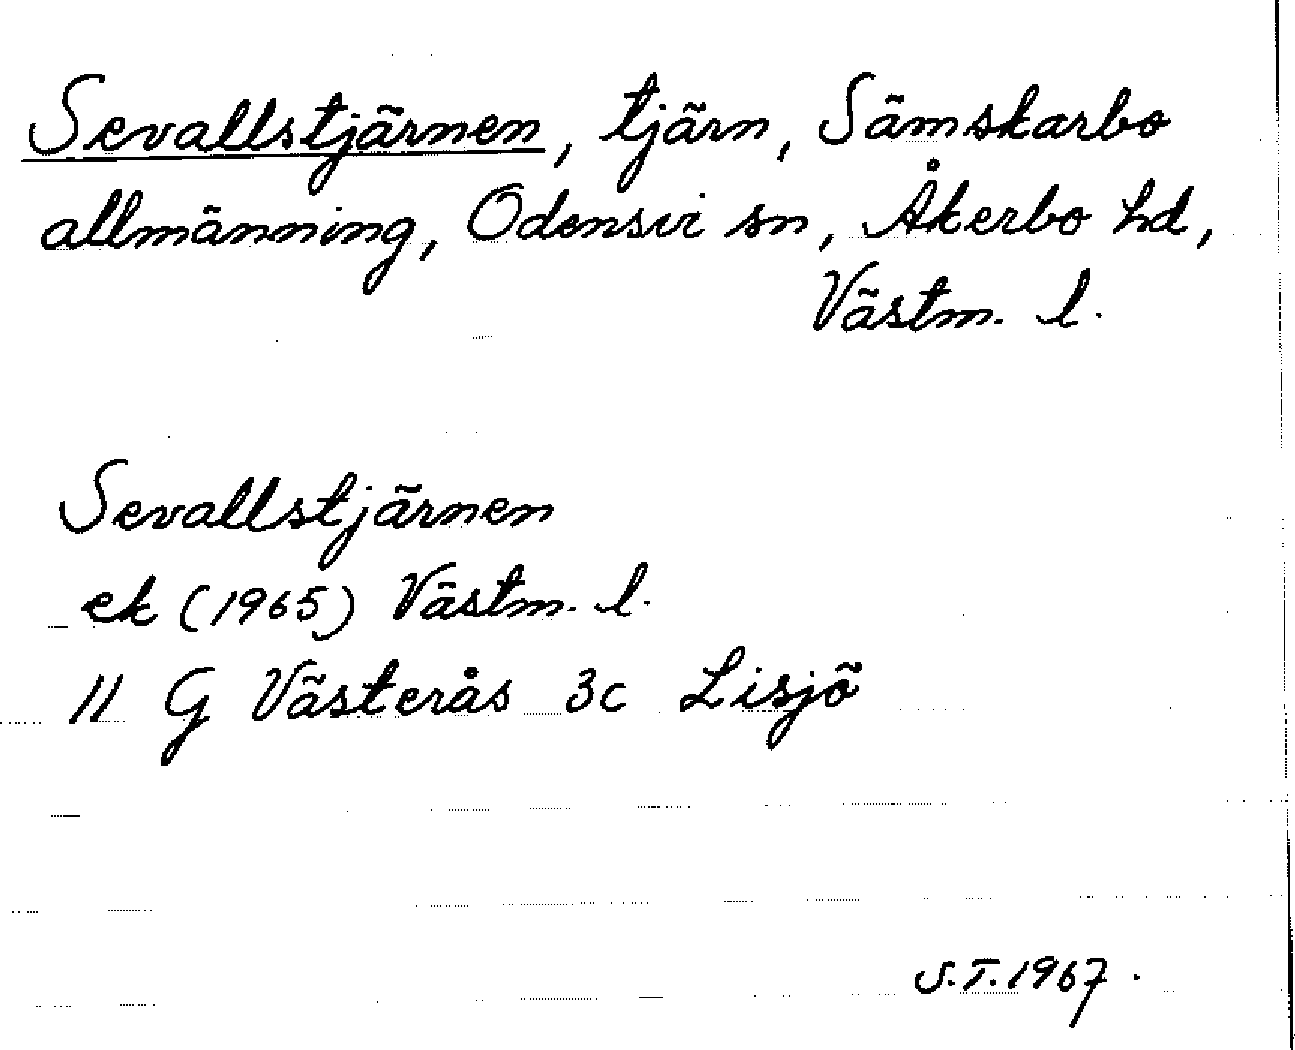 Sevallstjärnen, tjärn, Sämskarbo
allmänning, Odensvi sn, Åkerbo hd,
Västm. l.
Sevallstjärnen
ek (1965) Västm. l.
11 G Västerås 3c Lisjö
S.T. 1967.